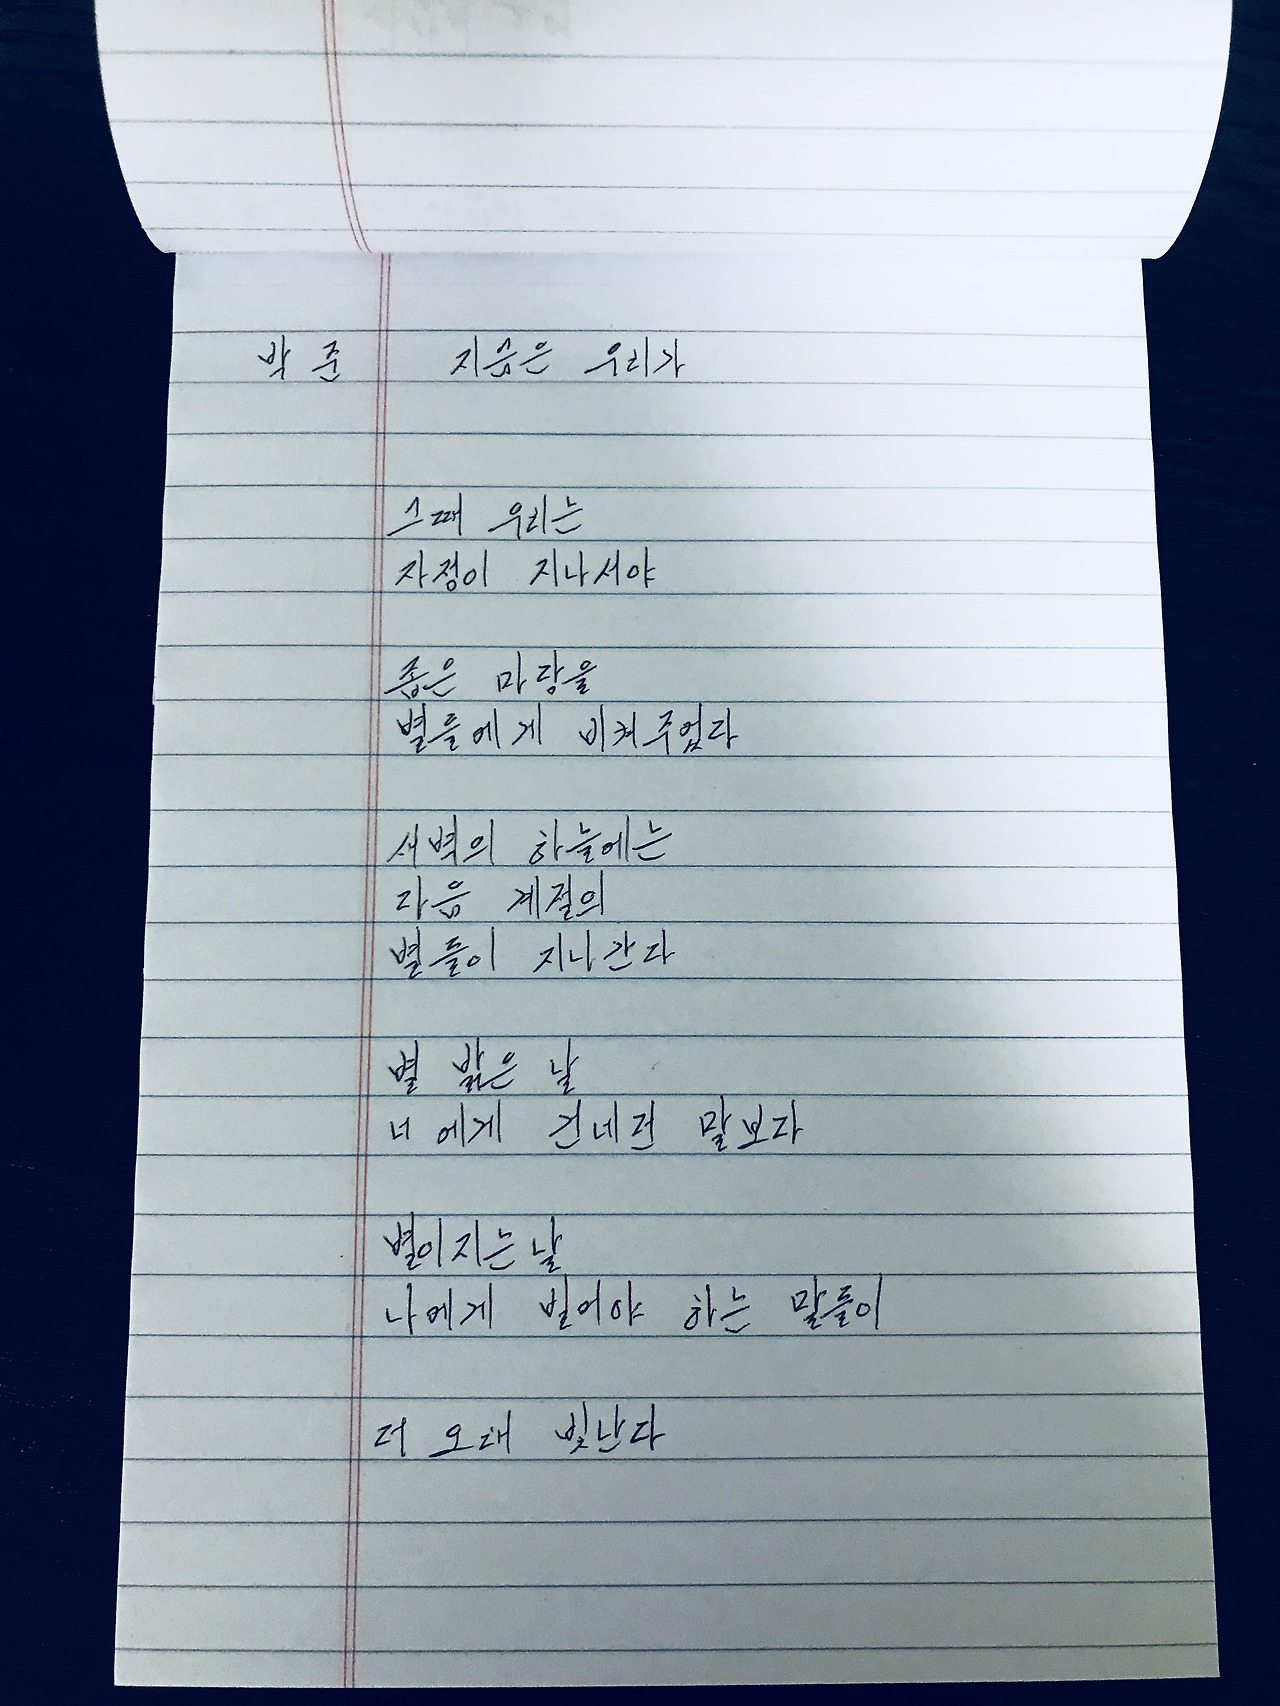 박 준 지금은 우리가
그때 우리는
자정이 지나서야
좁은 마당을
별들에게 비켜주었다
새벽의 하늘에는
다음 계절의
별들이 지나간다
별 밝은 날
너에게 건네던 말보다
별이 지는 날
나에게 빌어야 하는 말들이
더 오래 빛난다